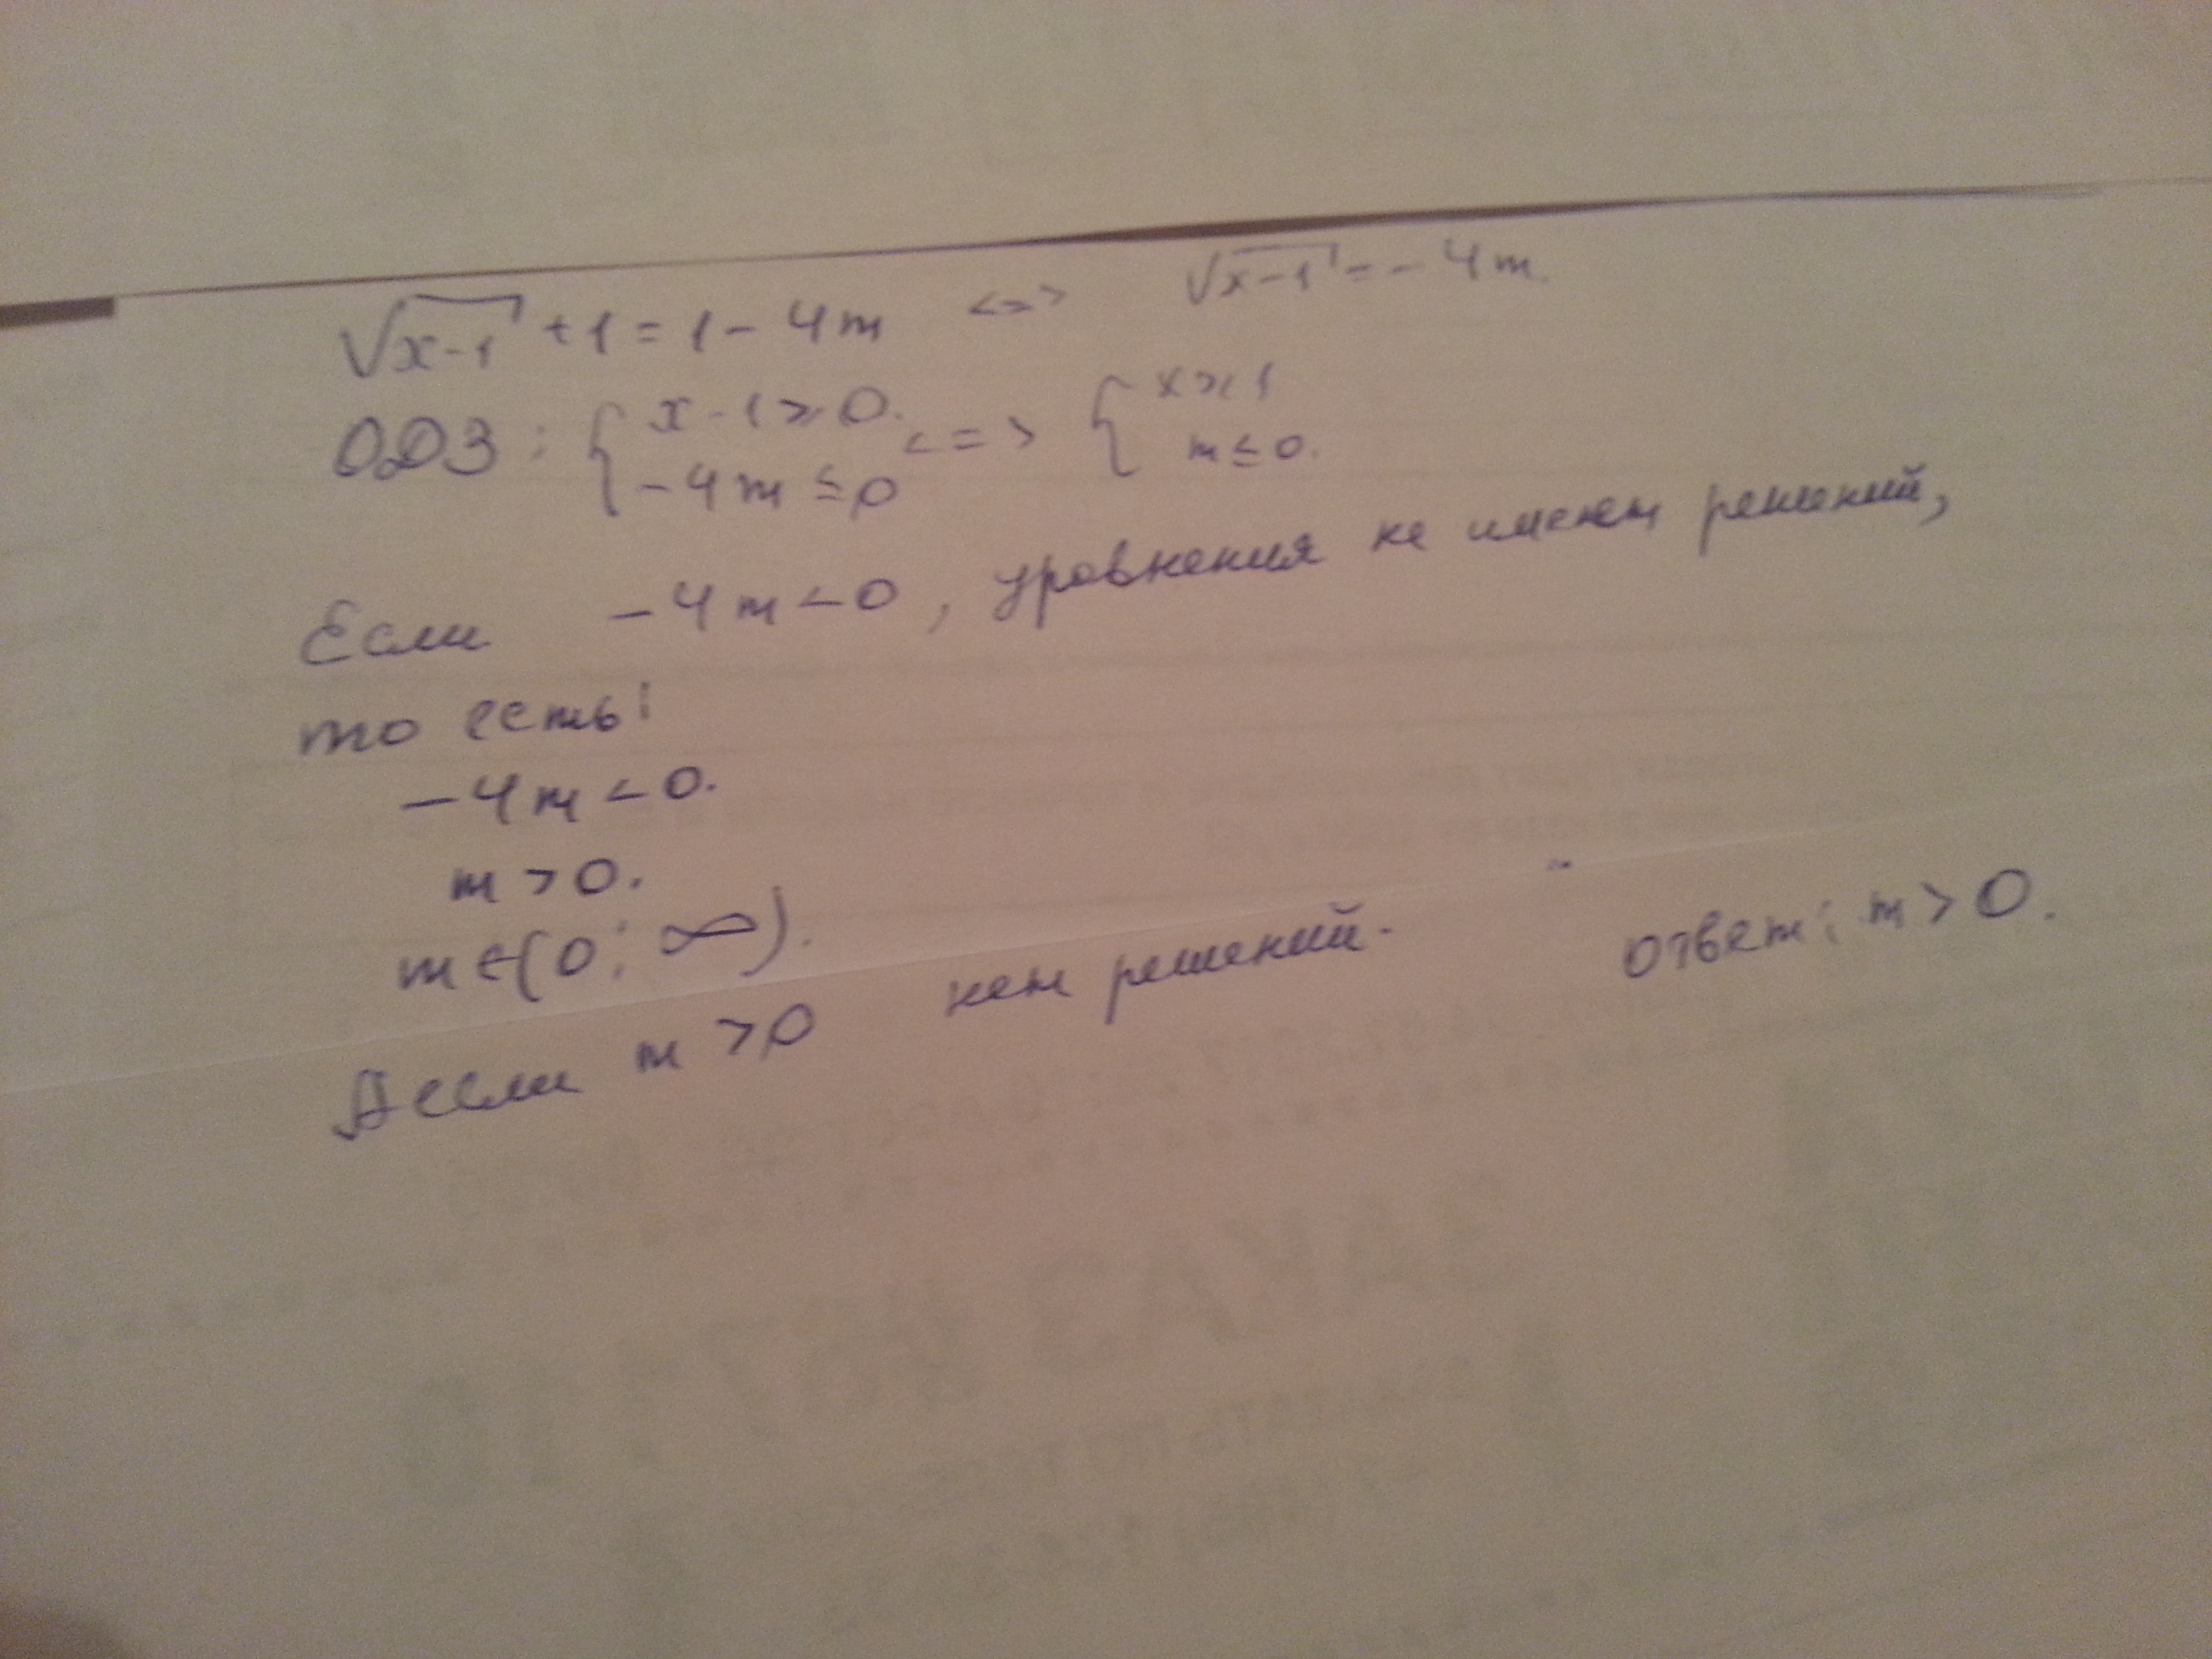 √x-1 + 1 = 1 - 4m <=> √x-1 = - 4m.
ОДЗ: { x - 1 ≥ 0. -4m ≤ 0 <=> { x ≥ 1 m ≤ 0.
Если -4m < 0, уровнения не имеют решений,
то есть:
-4m < 0.
m > 0.
m ∈ (0; ∞).
А если m > 0 нет решений. ответ: m > 0.
ЗАКАЗ